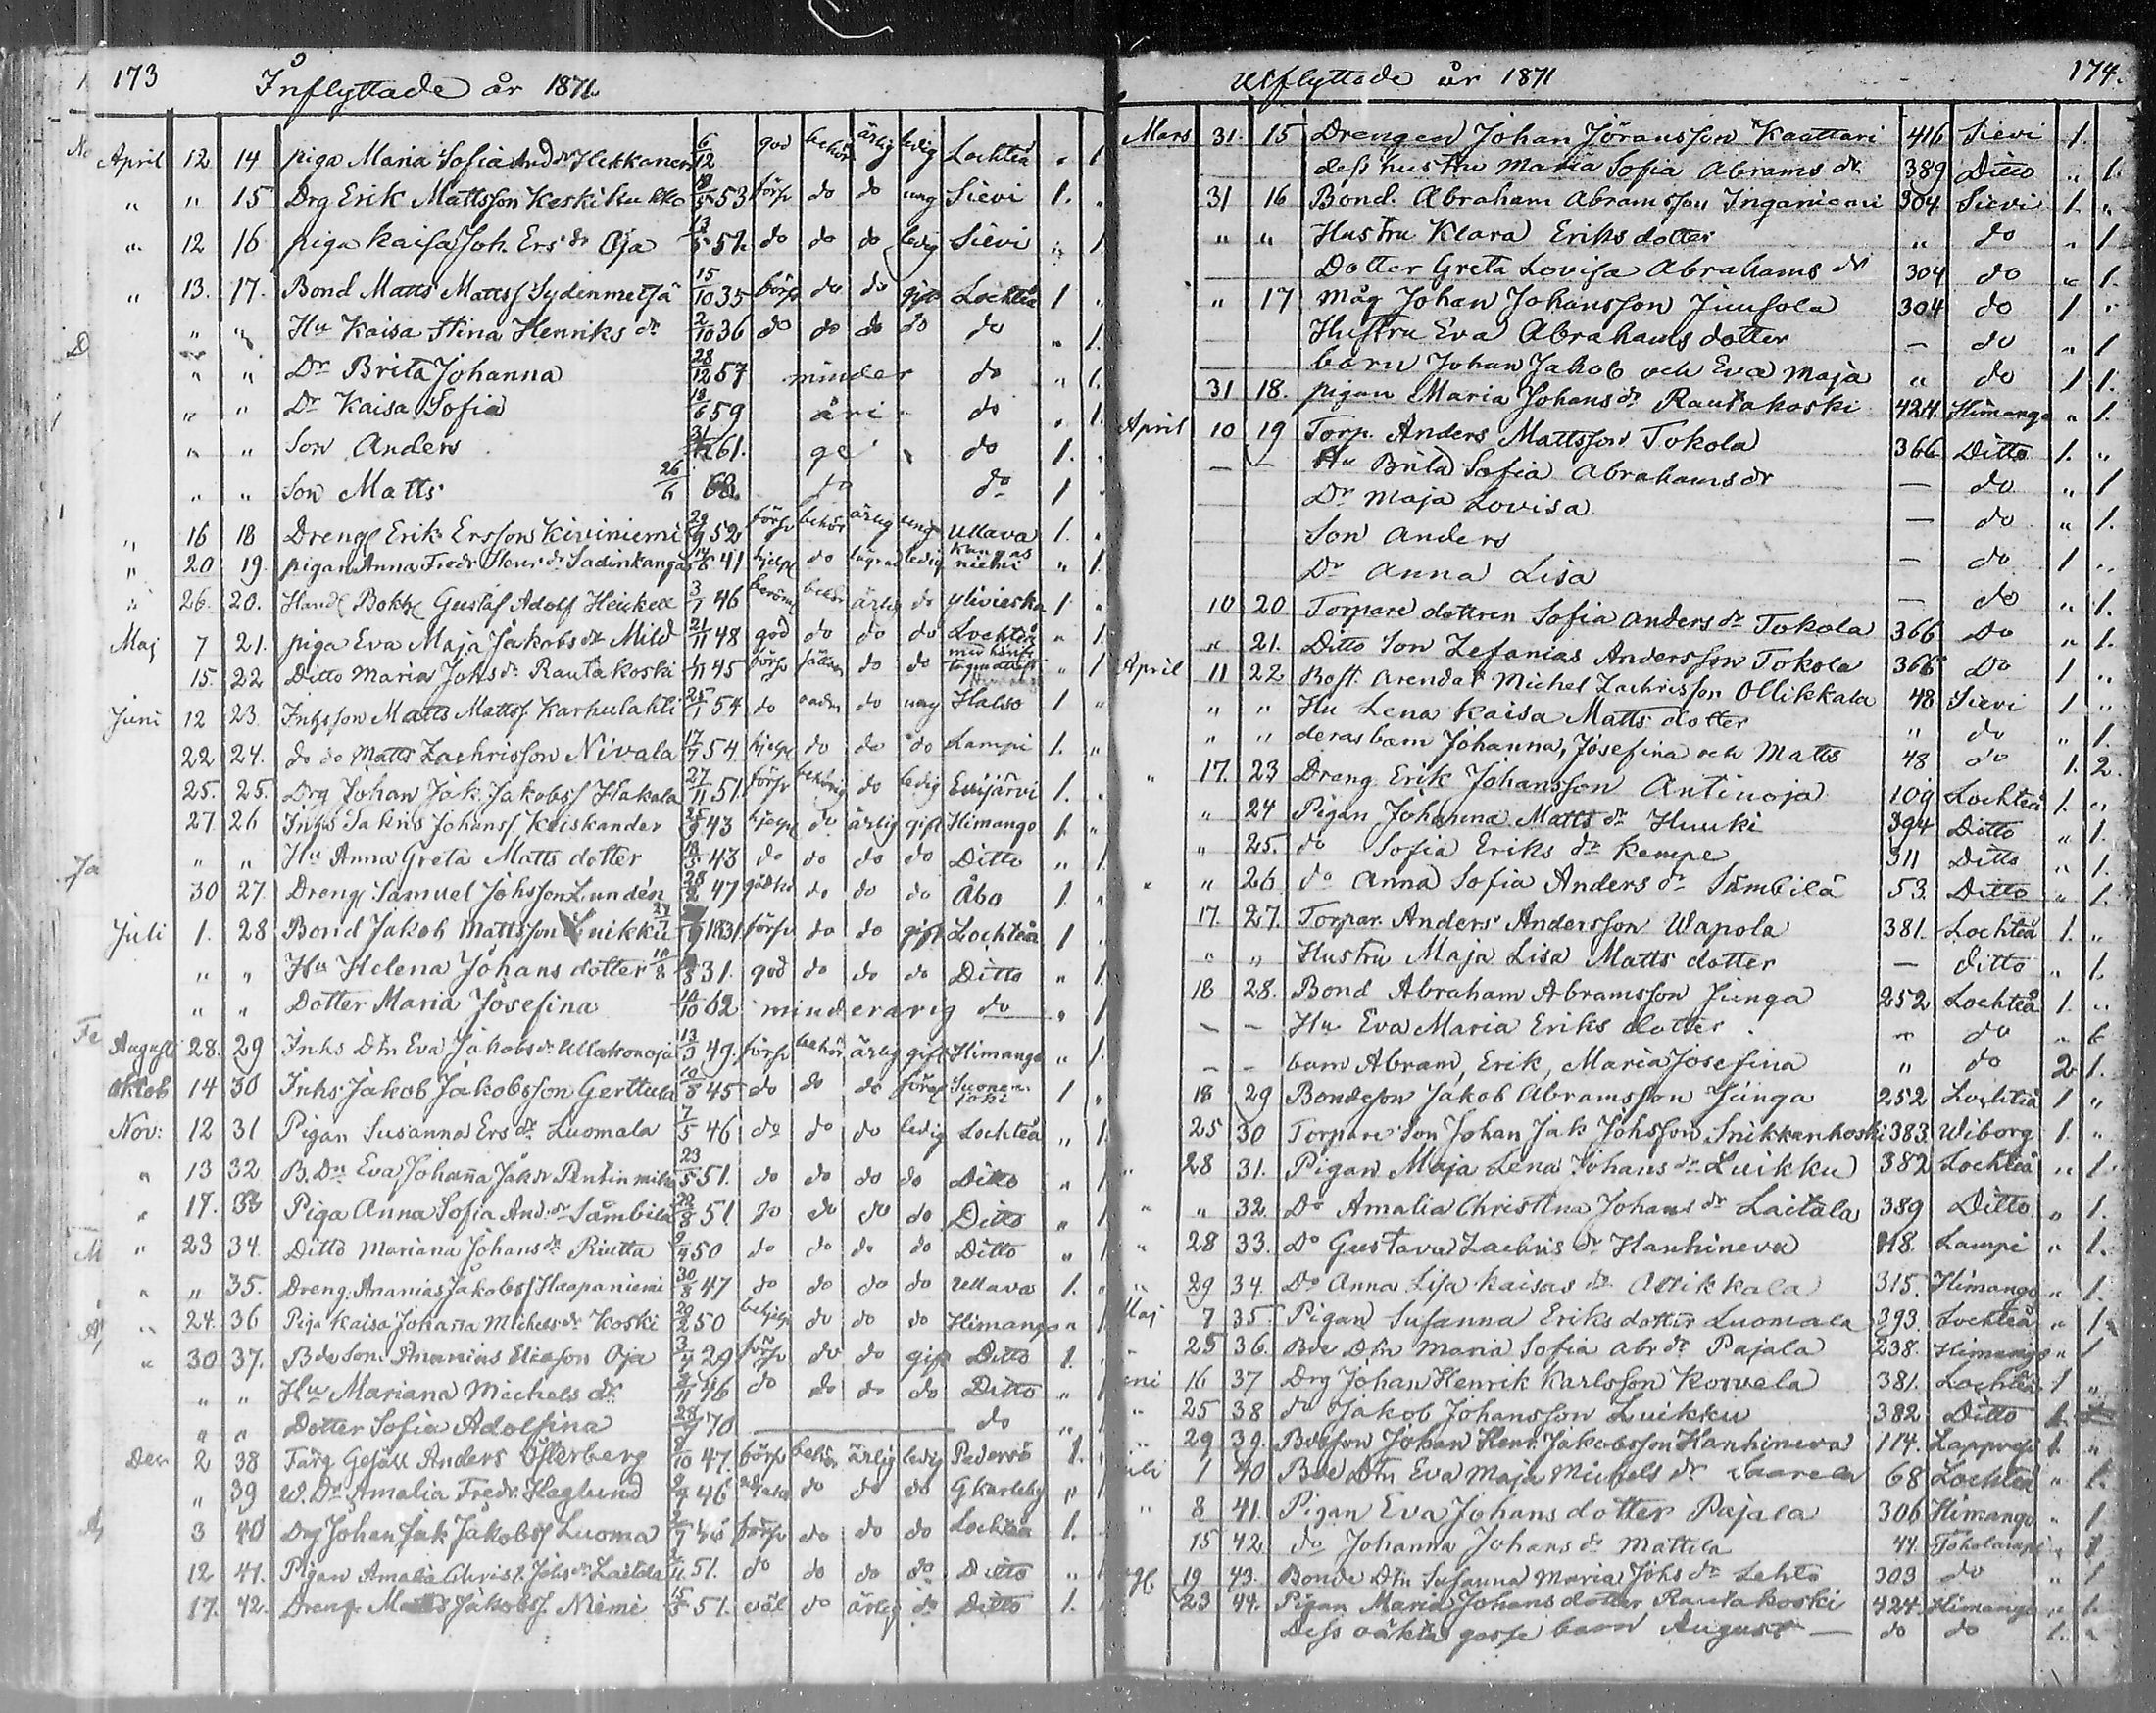 173 Inflyttade år 1871
April 12 14 piga Maria Sofia And dr Hekkanen 6/12 god behör ärlig ledig Lochteå " 1
" " 15 Drg Erik Mattsson Keskikukko 53 försv do do ung Sievi 1. "
" 12 16 piga Kaisa Joh. Ers dr Oja 52 do do do ledig Sievi " 1
" 13. 17. Bond Matts Mattss Sydenmetsä 15/10 35 försv do do gift Lochteå 1 "
" " Hu Kaisa Stina Henriks dr 2/10 36 do do do do do " 1.
" " Dr Brita Johanna 28/12 57 minder do " 1.
" " Dr Kaisa Sofia 18/6 59 åri do " 1.
" " Son Anders 61. ge " do 1. "
" " Son Matts 26/6 do 1 "
" 16 18 Drengs Erik Ersson Kiviniemi 29/9 52 försv behör ärlig ung Ullava 1. "
" 20 19. pigan Anna Fredr Henr dr Sadinkangas 41 hjelpl do ledig Kangas niemi " 1
" 26. 20. Handl Bokh Gustaf Adolf Heickell 46 beröml behör ärlig do Ylivieska 1 "
Maj 7 21. piga Eva Maja Jakobs dr Mild 21/11 48 god do do do Lochteå " 1.
15. 22 Ditto Maria Johs dr Rautakoski 45 försv sällan do do " 1
Juni 12 23 Inhysson Matts Mattss. Karhulahti 25/1 54 do do ung Halso 1 "
22 24. do do Matts Zachrisson Nivala 17/7 54 hjelpl do do do Lampi 1. "
25. 25. Drg Johan Jak. Jakobss Hakala 27/11 51. försv behörig do ledig Evijärvi 1. "
27. 26 Inhs Sakris Johanss Keiskander 25/9 43 hjelpl do ärlig gift Himango 1. "
" " Hu Anna Greta Matts dotter 43 do do do do Ditto " 1
30 27. Dreng Samuel Johsson Lundén 28/2 47 do do do Åbo 1. "
Juli 1. 28 Bond Jakob Mattsson Luikku 1831 försv do do gift Lochteå 1 "
" " Hu Helena Johans dotter 31. god do do do Ditto " 1
" " Dotter Maria Josefina 62 minderårig do " 1
Augusti 28. 29 Inhs Dtn Eva Jakobs dr Ullakonoja 13/3 49. försv behör ärlig gift Himango " 1.
oktob 14 30 Inhs Jakob Jakobsson Gerttula 10/8 45 do do do Suonen joki 1 "
Nov: 12 31 Pigan Susanna Ers dr Luomala 7/5 46 do do do ledig Lochteå " 1
" 13 32 B. Dr Eva Johanna Jak dr Pentinmäki 23/5 51. do do do do Ditto " 1
" 17. 33 Piga Anna Sofia And. dr Såmbila 51 do do do do Ditto " 1
" 23 34. Ditto Mariana Johans dr Riutta 50 do do do do Ditto " 1
" " 35. Dreng. Ananias Jakobss Haapaniemi 30/8 47 do do do do Ullava 1. "
" 24. 36 Piga Kaisa Johanna Michels dr Koski 50 do do do Himango " 1
" 30 37. Bde Son Ananias Eliasson Oja 29 försv do do gift Ditto 1. "
" " Hu Mariana Michels dr 46 do do do do Ditto " 1
" " Dotter Sofia Adolfina 70 do " 1
Dec 2 38 Färg Gesäll Anders Österberg 47 försv behör ärlig ledig Pedersö 1. "
" 39 W. Dr Amalia Fredr. Haglund 46 do do do Gkarleby " 1
3 40 Drg Johan Jak Jakobss Luoma försv do do do Lochteå 1. "
12 41. Pigan Amalia Christ. Johs dr Laitala 51. do do do do Ditto " 1
17. 42. Dreng. Matts Jakobss. Niemi 15/5 51. väl do ärlig do Ditto 1. "
Utflyttade år 1871 174.
Mars 31. 15 Drengen Johan Jöransson Kaattari 416 Sievi 1.
dess hustru Maria Sofia Abrams dr 389 Ditto " 1.
31 16 Bond. Abraham Abramsson Inganiemi 304 Sievi 1. "
" " Hustru Klara Eriks dotter " do " 1
Dotter Greta Lovisa Abrahams dr 304 do " 1.
" 17 Måg Johan Johansson Juusola 304 do 1 "
Hustru Eva Abrahams dotter — do " 1
barn Johan Jakob och Eva Maja " do 1 1.
31 18. pigan Maria Johans dr Rautakoski 424. Himango " 1.
April 10 19 Torp. Anders Mattsson Tokola 366 Ditto 1. "
— — Hu Brita Sofia Abrahams dr — do " 1
Dr Maja Lovisa — do " 1.
Son Anders — do 1 "
Dr Anna Lisa — do " 1.
10 20 Torpare dottren Sofia Anders dr Tokola 366 Do " 1.
" 21. Ditto Son Zefanias Andersson Tokola 366 Do 1 "
April 11 22 Bost. Arendat Michel Zachrisson Ollikkala 48 Sievi 1 "
" " Hu Lena Kaisa Matts dotter " do " 1.
" " deras barn Johanna, Josefina och Matts 48 do 1. 2.
" 17. 23 Dreng Erik Johansson Antinoja 109 Lochteå 1. "
" 24 Pigan Johanna Matts dr Huuki 394 Ditto " 1.
" 25. do Sofia Eriks dr Kempe 311 Ditto " 1.
" " 26 do Anna Sofia Anders dr Såmbilä 53. Ditto " 1.
17. 27. Torpar. Anders Andersson Wapola 381. Lochteå 1. "
" " Hustru Maja Lisa Matts dotter — ditto " 1.
18 28. Bond Abraham Abramsson Junga 252 Lochteå 1. "
— — Hu Eva Maria Eriks dotter " do "
— — barn Abram, Erik, Maria Josefina " do 2 1.
18 29 Bondeson Jakob Abramsson Junga 252 Lochteå 1 "
25 30 Torpare Son Johan Jak Johsson Snikkarikoski 383. Wiborg 1. "
" 28 31. Pigan Maja Lena Johans dr Luikku 382 Lochteå " 1.
" " 32. Do Amalia Christina Johans dr Laitala 389 Ditto " 1.
" 28 33. Do Gustava Zachris dr Hanhineva Lampi " 1.
" 29 34. Do Anna Lisa Kaisas dr Ollikkala 315. Himango " 1.
Maj 7 35 Pigan Susanna Eriks dotter Luomala 393. Lochteå " 1.
" 25 36. Bde Dtn Maria Sofia Abr dr Pajala 238. Himango " 1
16 37 Drg Johan Henrik Karlsson Korvela 381. Lochteå 1 "
" 25 38 do Jakob Johansson Luikku 382 Ditto 1.
" 29 39. Bdesson Johan Henr. Jakobsson Hanhineva 114. Lappvesi 1. "
1 40 Bde Dtn Eva Maja Michels dr Saarela 68 Lochteå " 1.
" 8 41. Pigan Eva Johans dotter Pajala 306 Himango " 1
15 42. do Johanna Johans dr Mattila 44. Toholampi " 1
19 43. Bonde Dtn Susanna Maria Johs dr Lehto 303 do " 1
23 44. Pigan Maria Johans dotter Rautakoski 424. Himango " 1.
Dess oäkta gosse barn August — do do 1. "